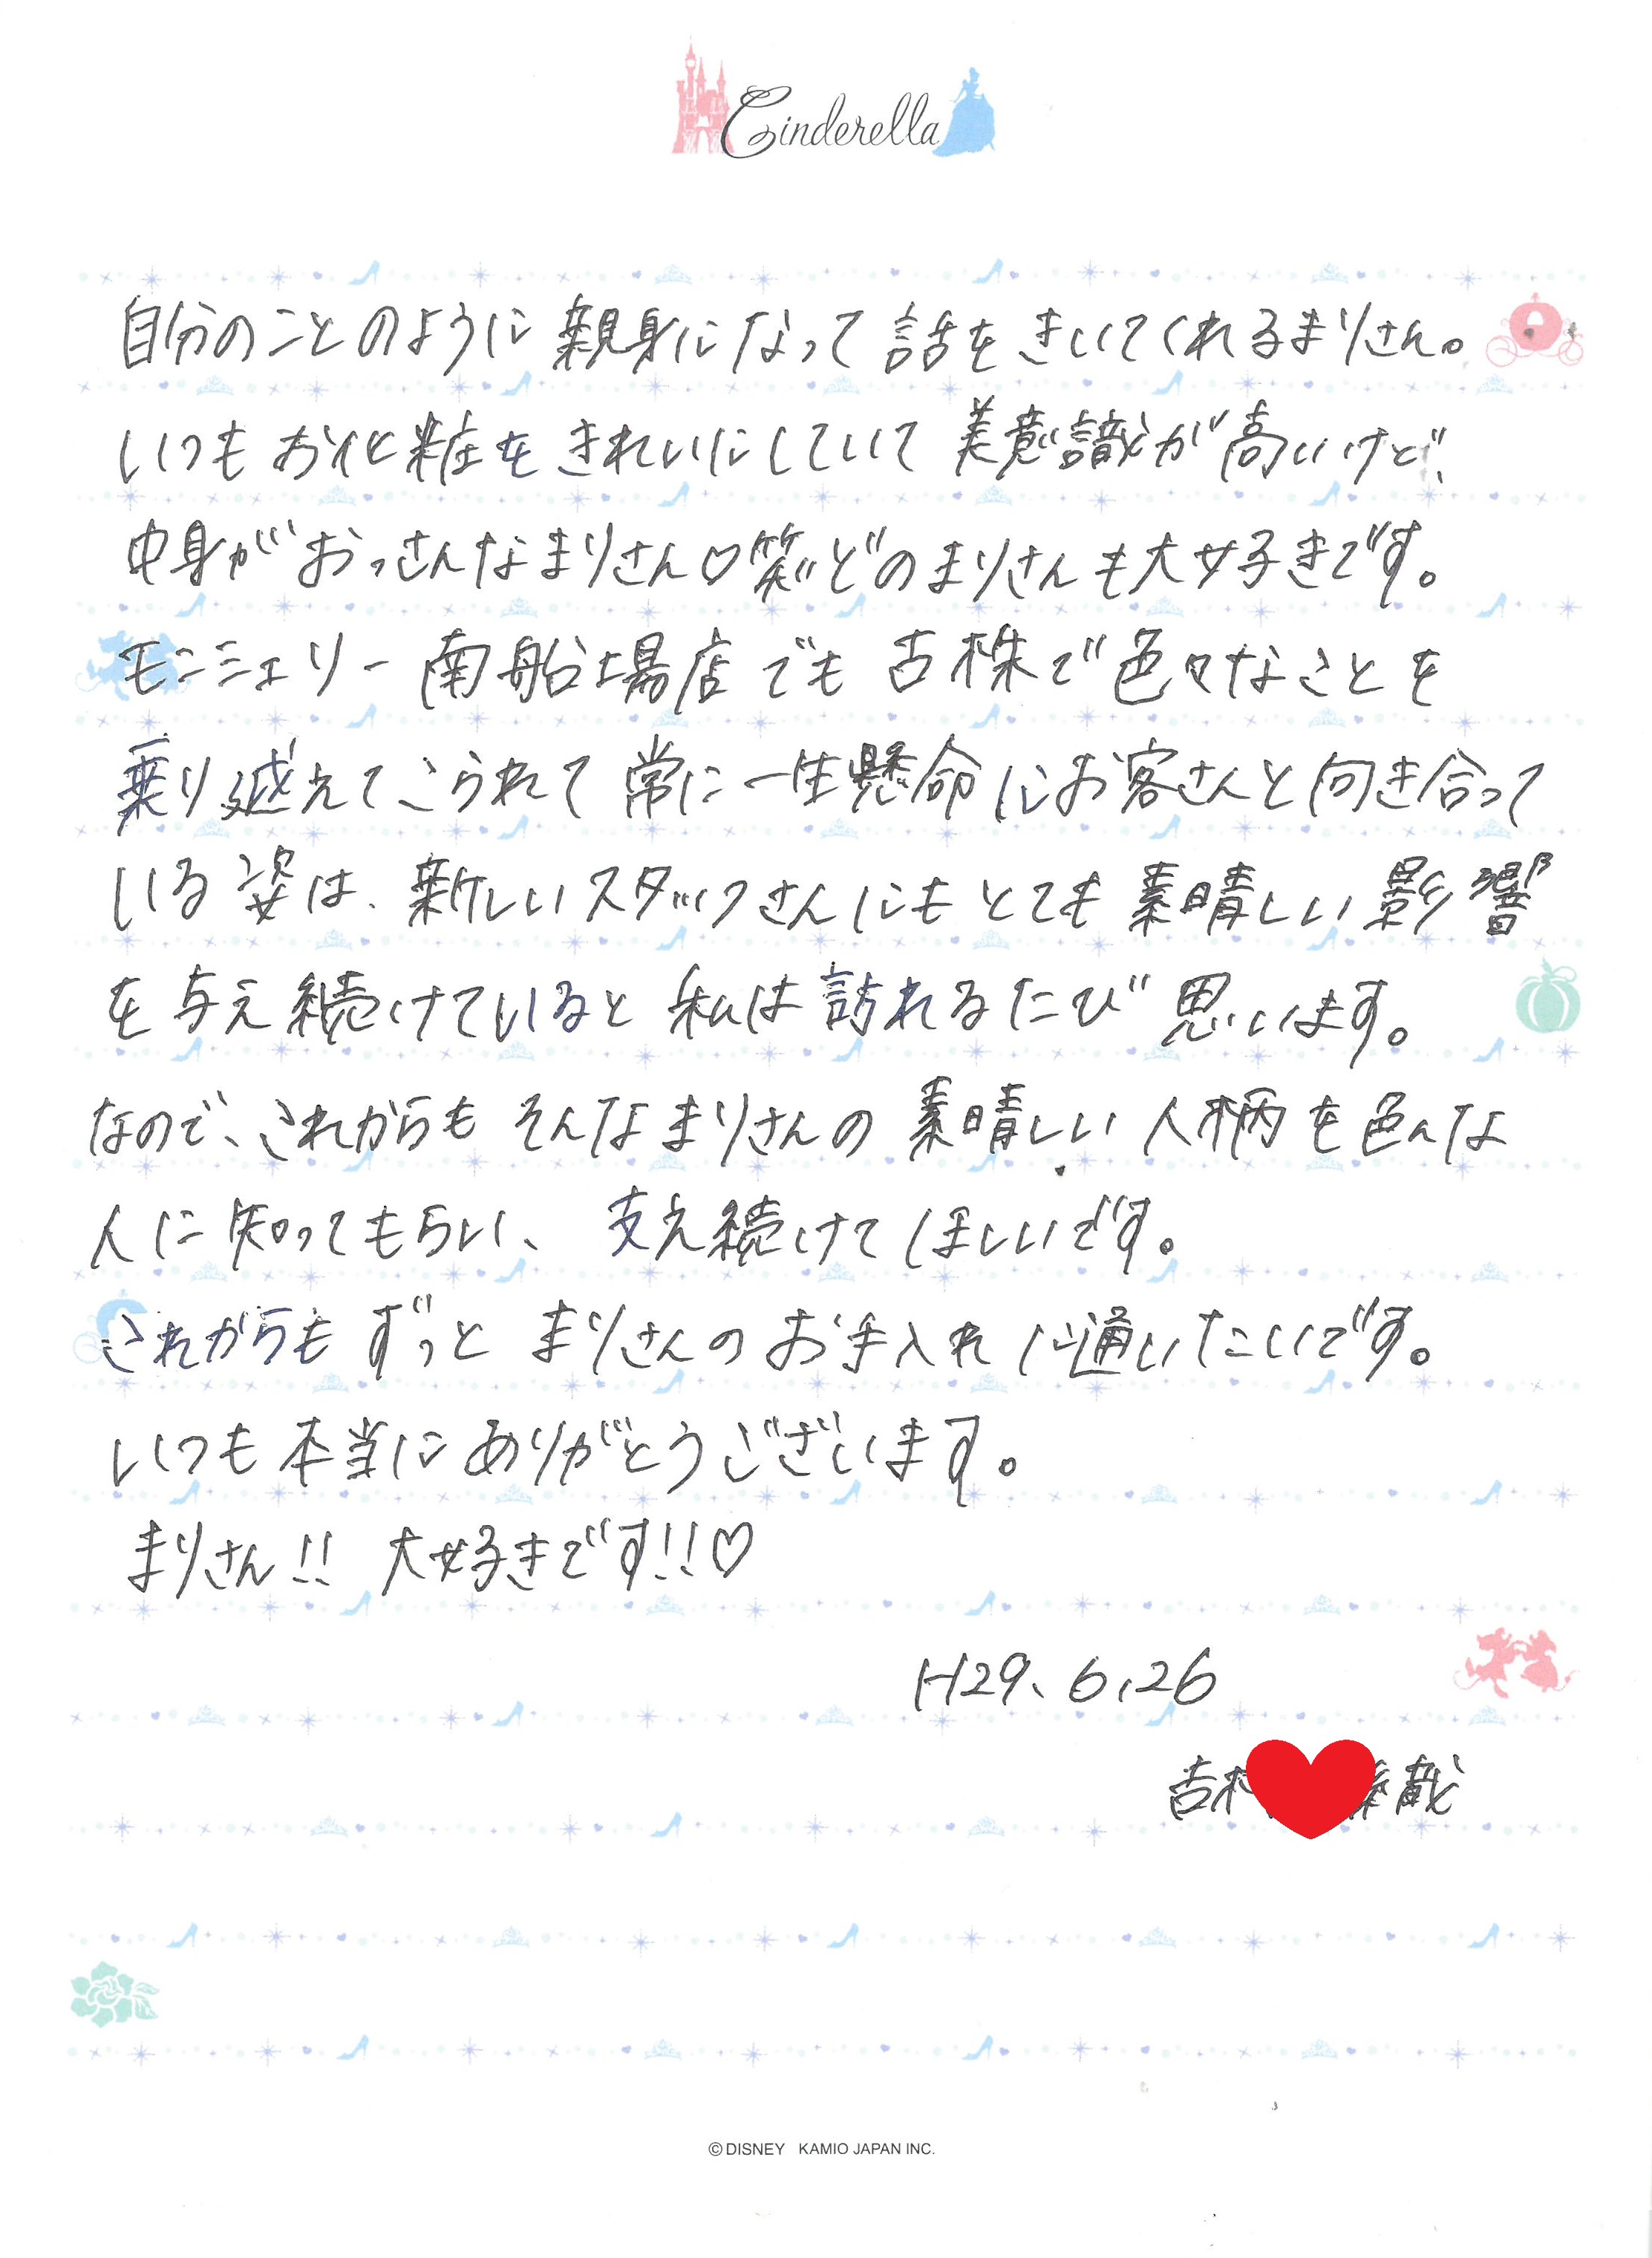 Cinderella
自分のことのように親身になって話をきいてくれるまりさん。
いつもお化粧をきれいにしていて美意識が高いけど、
中身がおっさんなまりさん♡笑 どのまりさんも大好きです。
モンシェリー南船場店でも古株で色々なことを
乗り越えてこられて常に一生懸命にお客さんと向き合って
いる姿は、新しいスタッフさんにもとても素晴しい影響
を与え続けていると私は訪れるたび思います。
なので、これからもそんなまりさんの素晴しい人柄を色んな
人に知ってもらい、支え続けてほしいです。
これからもずっとまりさんのお手入れに通いたいです。
いつも本当にありがとうございます。
まりさん!! 大好きです!!♡
H29.6.26
吉
©DISNEY KAMIO JAPAN INC.